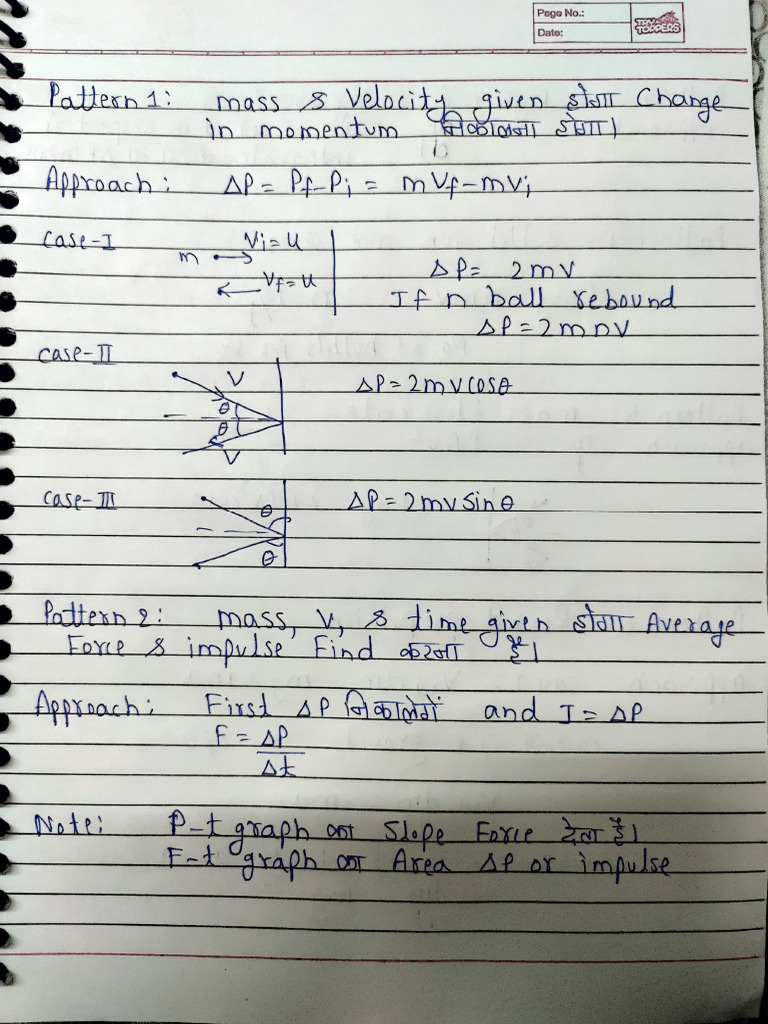 Page No.:
Date:
TRY TOPPERS
Pattern 1: mass & Velocity given होगा Change
in momentum निकालना होगा।
Approach: ΔP = Pf-Pi = mVf-mVi
Case-I
Vi=u
m
Vf=u
ΔP= 2mv
If n ball rebound
ΔP=2mnv
Case-II
V
θ
θ
V
ΔP=2mvcosθ
Case-III
θ
θ
ΔP=2mvsinθ
Pattern 2: mass, V, & time given होगा Average
Force & impulse Find करना है।
Approach: First ΔP निकालेगें and I=ΔP
F = ΔP
Δt
Note: P-t graph का Slope Force देता है।
F-t graph का Area ΔP or impulse